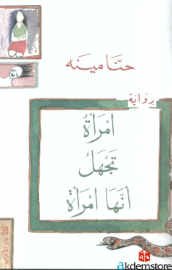 حنا مينه
رواية
امرأة
تجهل
أنها امرأة
akdemstore